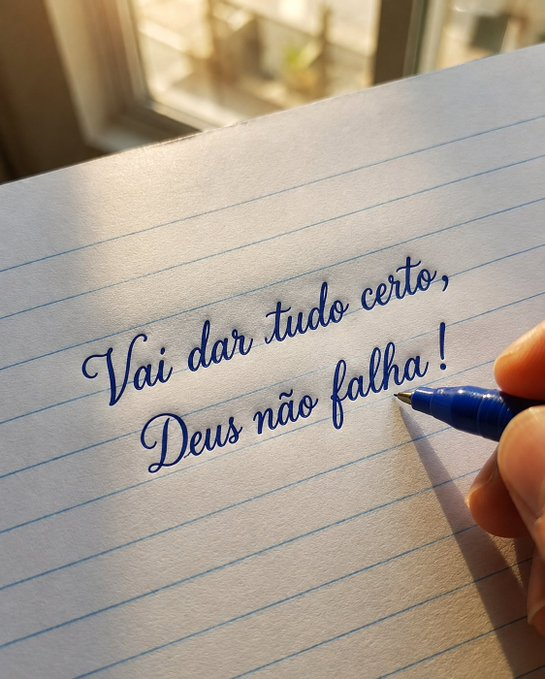 Vai dar tudo certo,
Deus não falha!